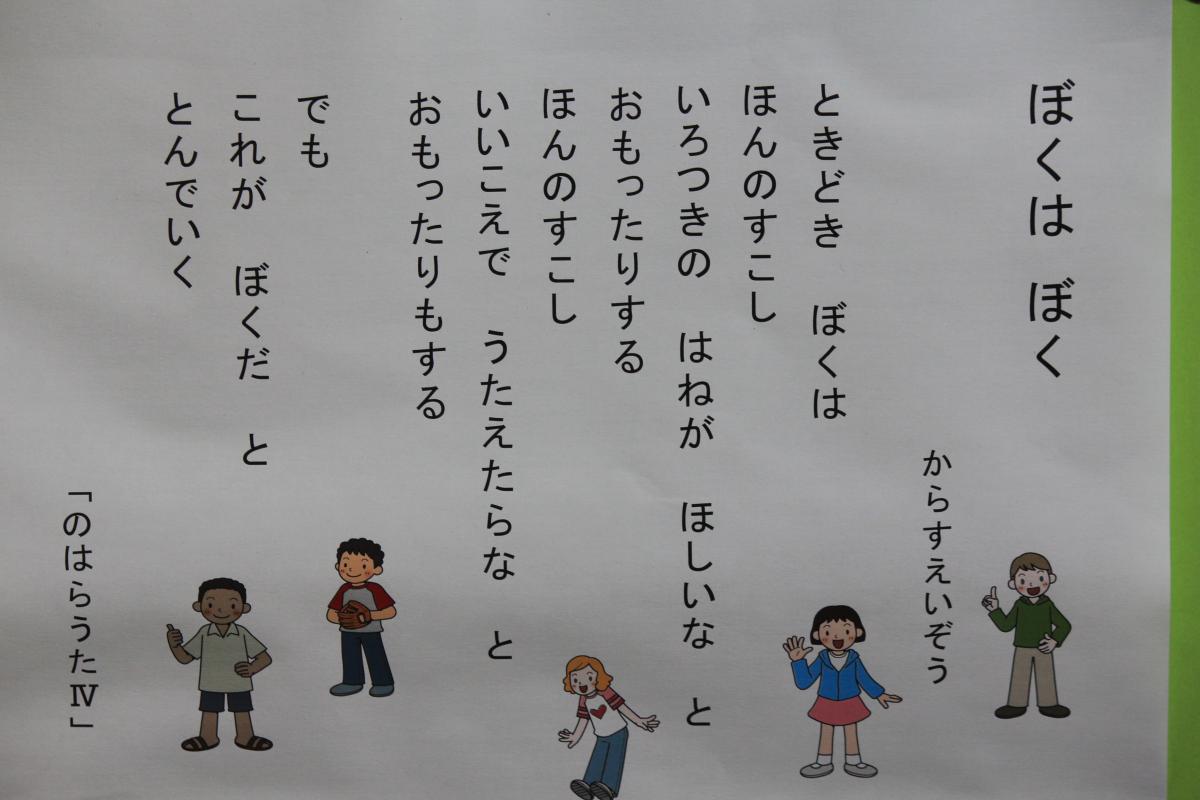 ぼくは ぼく
からすえいぞう
ときどき ぼくは
ほんのすこし
いろつきの はねが ほしいな と
おもったりする
ほんのすこし
いいこえで うたえたらな と
おもったりもする
でも
これが ぼくだ と
とんでいく
「のはらうたⅣ」